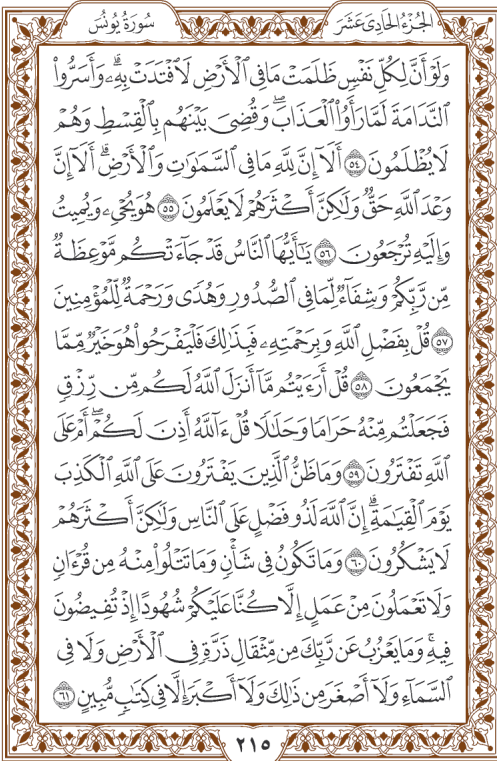 سُورَةُ يُونُسَ
الجُزْءُ الحَادِيَ عَشَرَ
وَلَوۡ أَنَّ لِكُلِّ نَفۡسٖ ظَلَمَتۡ مَا فِي ٱلۡأَرۡضِ لَٱفۡتَدَتۡ بِهِۦۗ وَأَسَرُّواْ
ٱلنَّدَامَةَ لَمَّا رَأَوُاْ ٱلۡعَذَابَۖ وَقُضِيَ بَيۡنَهُم بِٱلۡقِسۡطِ وَهُمۡ
لَا يُظۡلَمُونَ ٥٤ أَلَآ إِنَّ لِلَّهِ مَا فِي ٱلسَّمَٰوَٰتِ وَٱلۡأَرۡضِۗ أَلَآ إِنَّ
وَعۡدَ ٱللَّهِ حَقّٞ وَلَٰكِنَّ أَكۡثَرَهُمۡ لَا يَعۡلَمُونَ ٥٥ هُوَ يُحۡيِۦ وَيُمِيتُ
وَإِلَيۡهِ تُرۡجَعُونَ ٥٦ يَٰٓأَيُّهَا ٱلنَّاسُ قَدۡ جَآءَتۡكُم مَّوۡعِظَةٞ
مِّن رَّبِّكُمۡ وَشِفَآءٞ لِّمَا فِي ٱلصُّدُورِ وَهُدٗى وَرَحۡمَةٞ لِّلۡمُؤۡمِنِينَ
٥٧ قُلۡ بِفَضۡلِ ٱللَّهِ وَبِرَحۡمَتِهِۦ فَبِذَٰلِكَ فَلۡيَفۡرَحُواْ هُوَ خَيۡرٞ مِّمَّا
يَجۡمَعُونَ ٥٨ قُلۡ أَرَءَيۡتُم مَّآ أَنزَلَ ٱللَّهُ لَكُم مِّن رِّزۡقٖ
فَجَعَلۡتُم مِّنۡهُ حَرَامٗا وَحَلَٰلٗا قُلۡ ءَآللَّهُ أَذِنَ لَكُمۡۖ أَمۡ عَلَى
ٱللَّهِ تَفۡتَرُونَ ٥٩ وَمَا ظَنُّ ٱلَّذِينَ يَفۡتَرُونَ عَلَى ٱللَّهِ ٱلۡكَذِبَ
يَوۡمَ ٱلۡقِيَٰمَةِۗ إِنَّ ٱللَّهَ لَذُو فَضۡلٍ عَلَى ٱلنَّاسِ وَلَٰكِنَّ أَكۡثَرَهُمۡ
لَا يَشۡكُرُونَ ٦٠ وَمَا تَكُونُ فِي شَأۡنٖ وَمَا تَتۡلُواْ مِنۡهُ مِن قُرۡءَانٖ
وَلَا تَعۡمَلُونَ مِنۡ عَمَلٍ إِلَّا كُنَّا عَلَيۡكُمۡ شُهُودًا إِذۡ تُفِيضُونَ
فِيهِۚ وَمَا يَعۡزُبُ عَن رَّبِّكَ مِن مِّثۡقَالِ ذَرَّةٖ فِي ٱلۡأَرۡضِ وَلَا فِي
ٱلسَّمَآءِ وَلَآ أَصۡغَرَ مِن ذَٰلِكَ وَلَآ أَكۡبَرَ إِلَّا فِي كِتَٰبٖ مُّبِينٍ ٦١
٢١٥